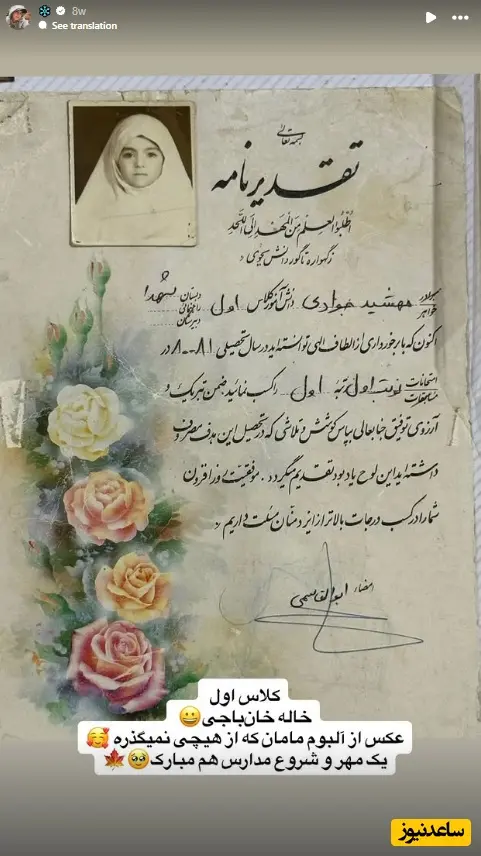 8w
See translation
بسمه تعالی
تقدیرنامه
اُطْلُبُوا الْعِلْمَ مِنَ الْمَهْدِ اِلَی اللَّحَدِ
زگهواره تا گور دانش بجوی
برادر خواهر مهشید جوادی دانش‌آموز کلاس اول دبستان راهنمائی دبیرستان شهدا
اکنون که با برخورداری از الطاف الهی توانسته‌اید در سال تحصیلی ۸۱-۸۰ در
امتحانات مسابقات نوبت اول رتبه اول را کسب نمائید ضمن تبریک و
آرزوی توفیق جنابعالی بپاس کوشش و تلاشی که در تحصیل این هدف مصروف
داشته‌اید این لوح یادبود تقدیم میگردد. موفقیت روزافزون
شما را در کسب درجات بالاتر از ایزد منان مسئلت داریم
امضاء ابوالقاسمی
کلاس اول
خاله خان‌باجی😀
عکس از آلبوم مامان که از هیچی نمیگذره 🥰
یک مهر و شروع مدارس هم مبارک🥹🍁
ساعدنیوز